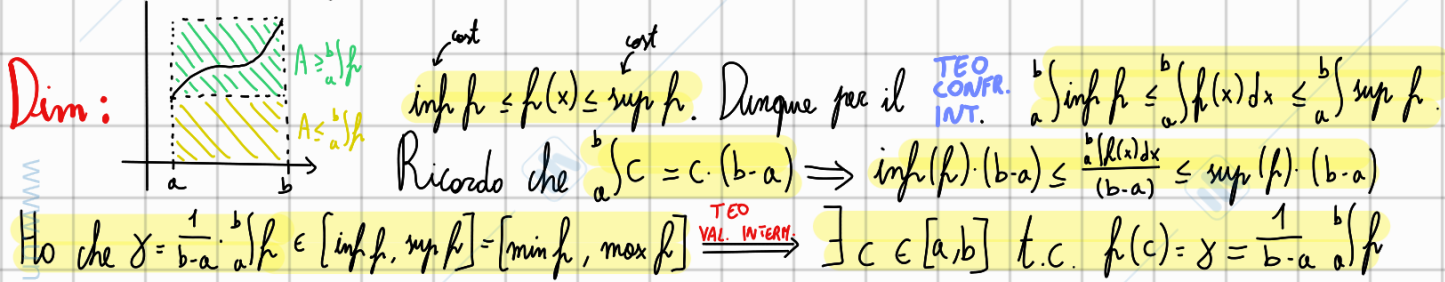 cost cost
A ≥ ₐ∫ᵇ f
Dim: inf f ≤ f(x) ≤ sup f. Dunque per il TEO CONFR. INT. ₐ∫ᵇ inf f ≤ ₐ∫ᵇ f(x) dx ≤ ₐ∫ᵇ sup f.
A ≤ ₐ∫ᵇ f
a b
Ricordo che ₐ∫ᵇ c = c · (b-a) ⟹ inf(f) · (b-a) ≤ ₐ∫ᵇ f(x) dx / (b-a) ≤ sup(f) · (b-a)
Ho che γ = 1/(b-a) · ₐ∫ᵇ f ∈ [inf f, sup f] = [min f, max f] TEO VAL. INTERM. ⟹ ∃ c ∈ [a,b] t.c. f(c) = γ = 1/(b-a) ₐ∫ᵇ f